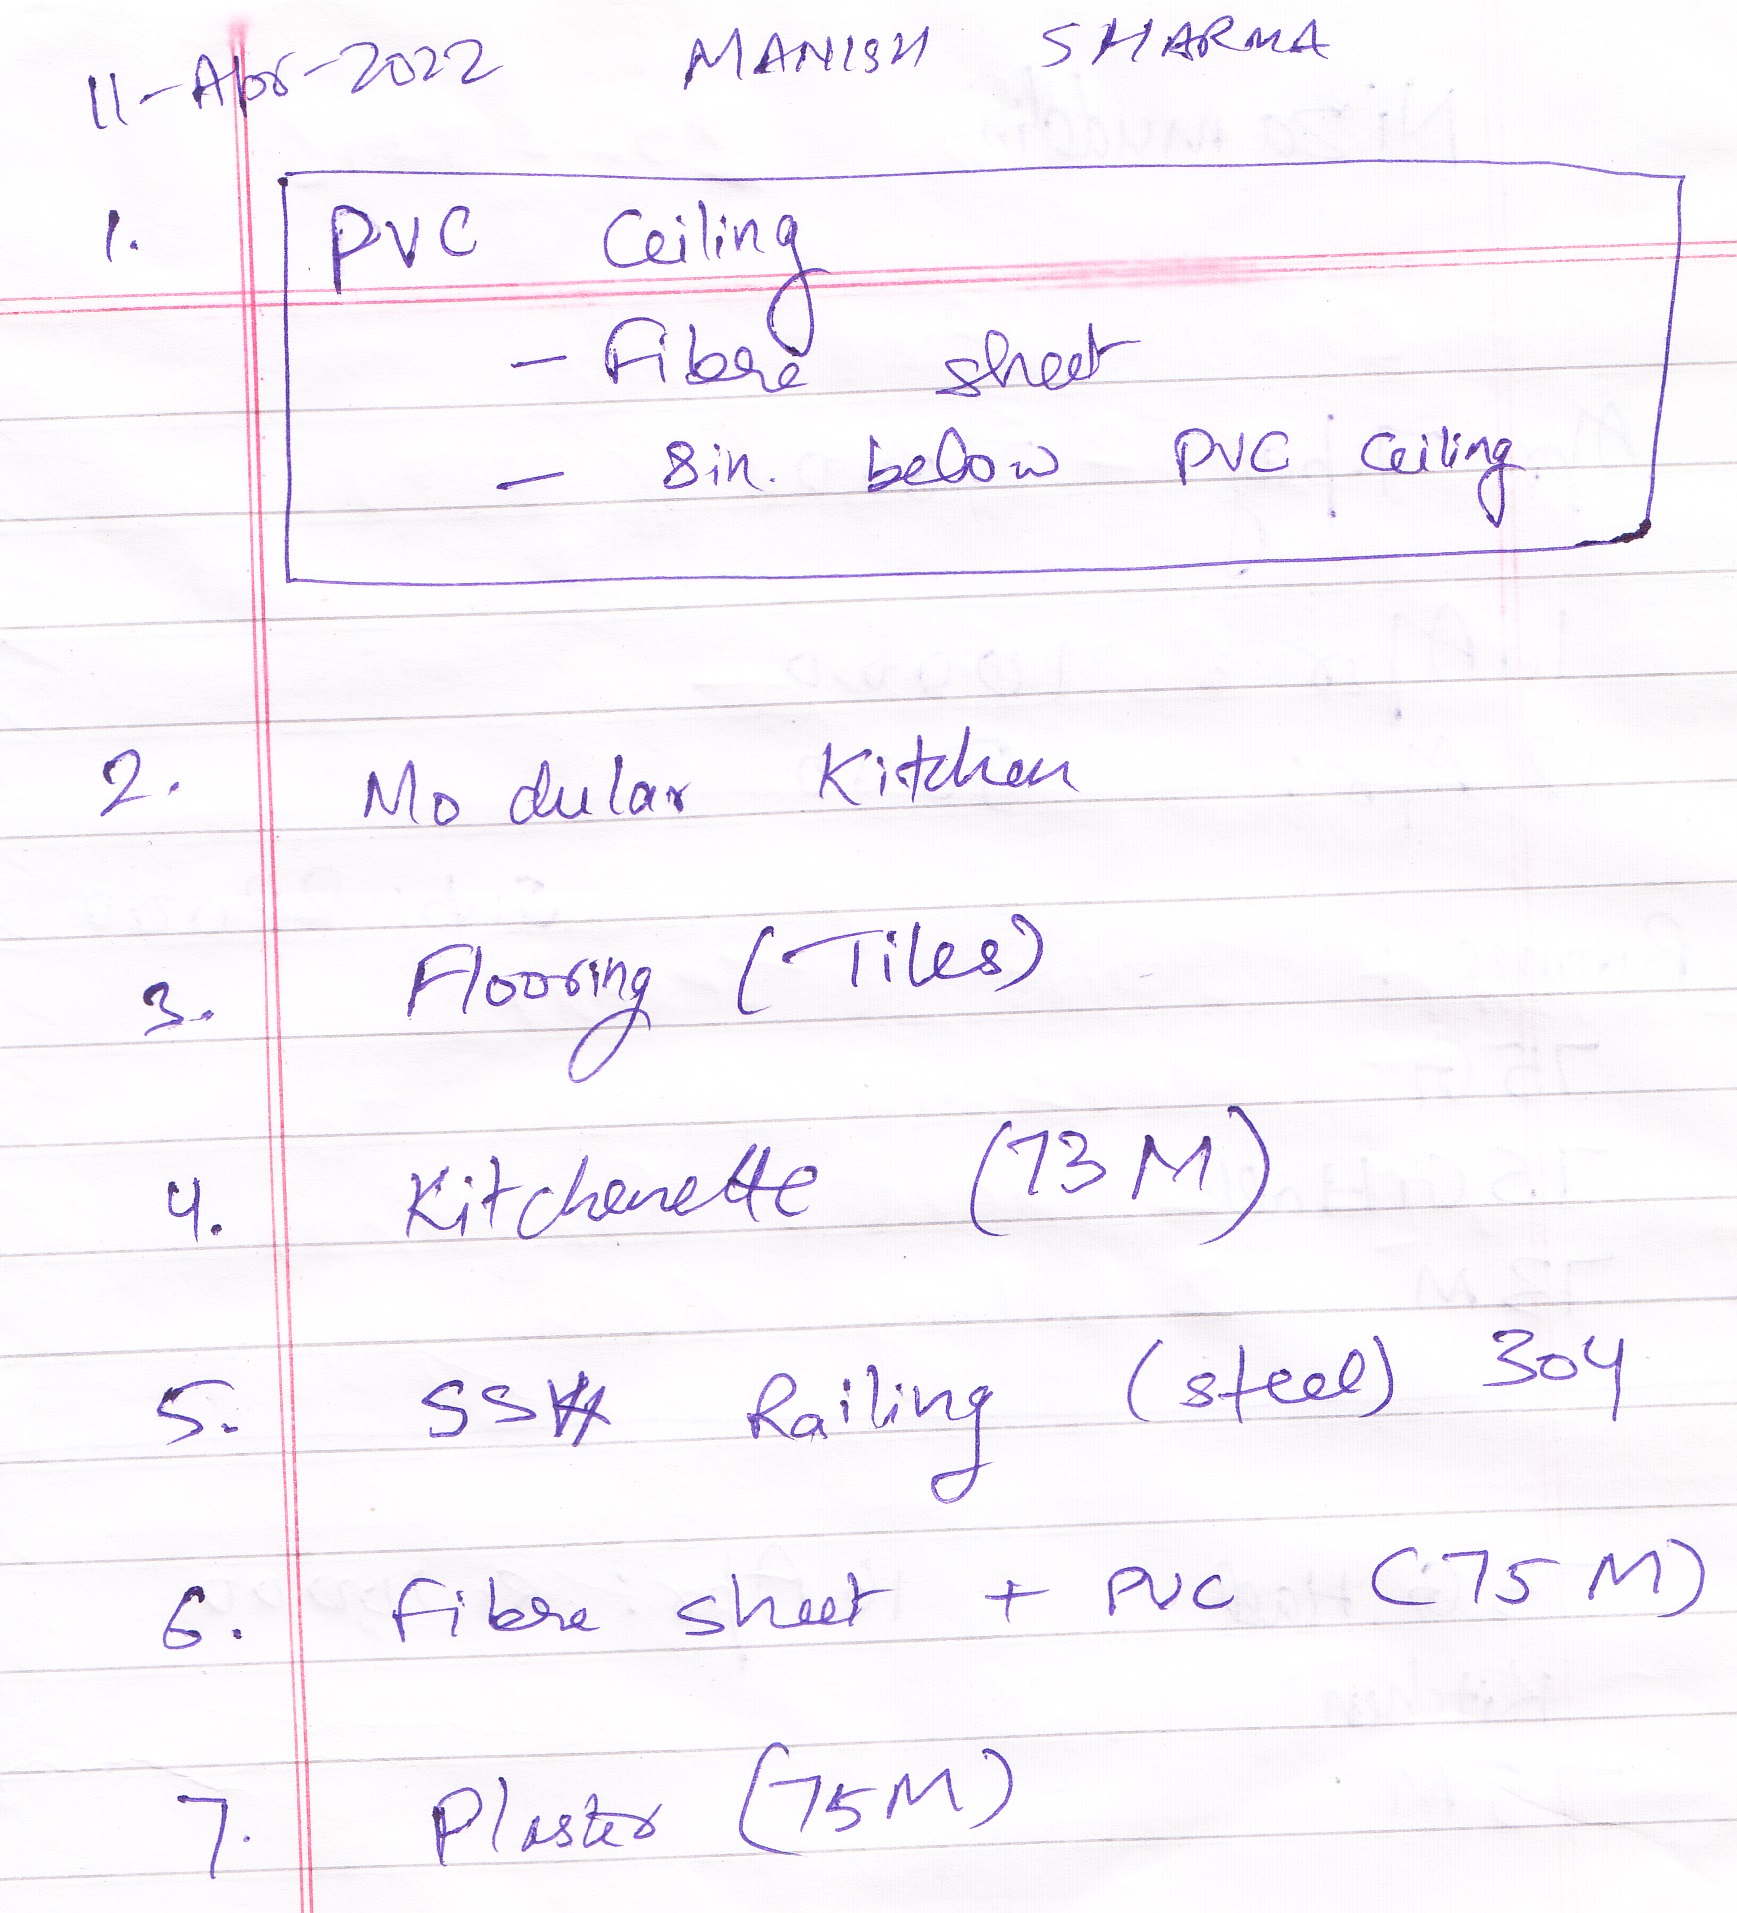 11-Apr-2022 MANISH SHARMA
1. PVC Ceiling
- Fibre sheet
- 8in. below PVC Ceiling
2. Modular Kitchen
3. Flooring (Tiles)
4. Kitchenette (73M)
5. SS Railing (steel) 304
6. Fibre sheet + PVC (75M)
7. Plaster (75M)